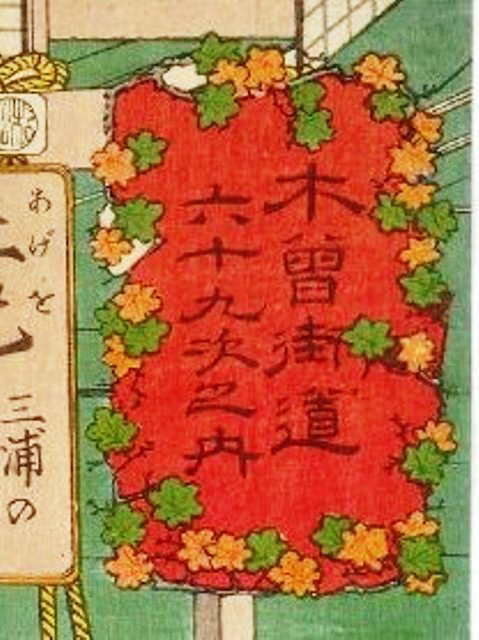 木曾街道
六十九次之内
あげを
三浦の